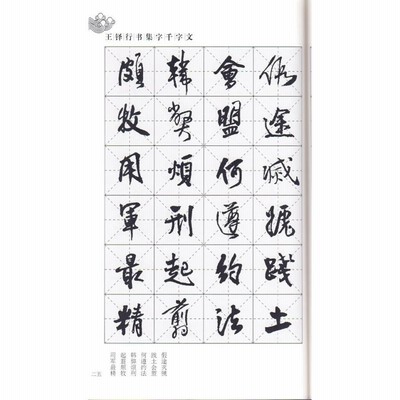 王铎行书集字千字文
假途滅虢踐土
會盟何遵約法
韓弊煩刑起翦
頗牧用軍最精
假途灭虢
践土会盟
何遵约法
韩弊烦刑
起翦颇牧
用军最精
二五